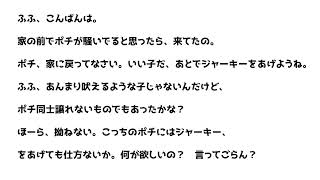 ふふ、こんばんは。
家の前でポチが騒いでると思ったら、来てたの。
ポチ、家に戻ってなさい。いい子だ、あとでジャーキーをあげようね。
ふふ、あんまり吠えるような子じゃないんだけど、
ポチ同士譲れないものでもあったかな？
ほーら、拗ねない。こっちのポチにはジャーキー、
をあげても仕方ないか。何が欲しいの？　言ってごらん？